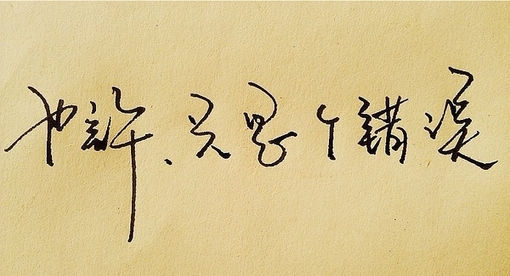 也許、只是个错误